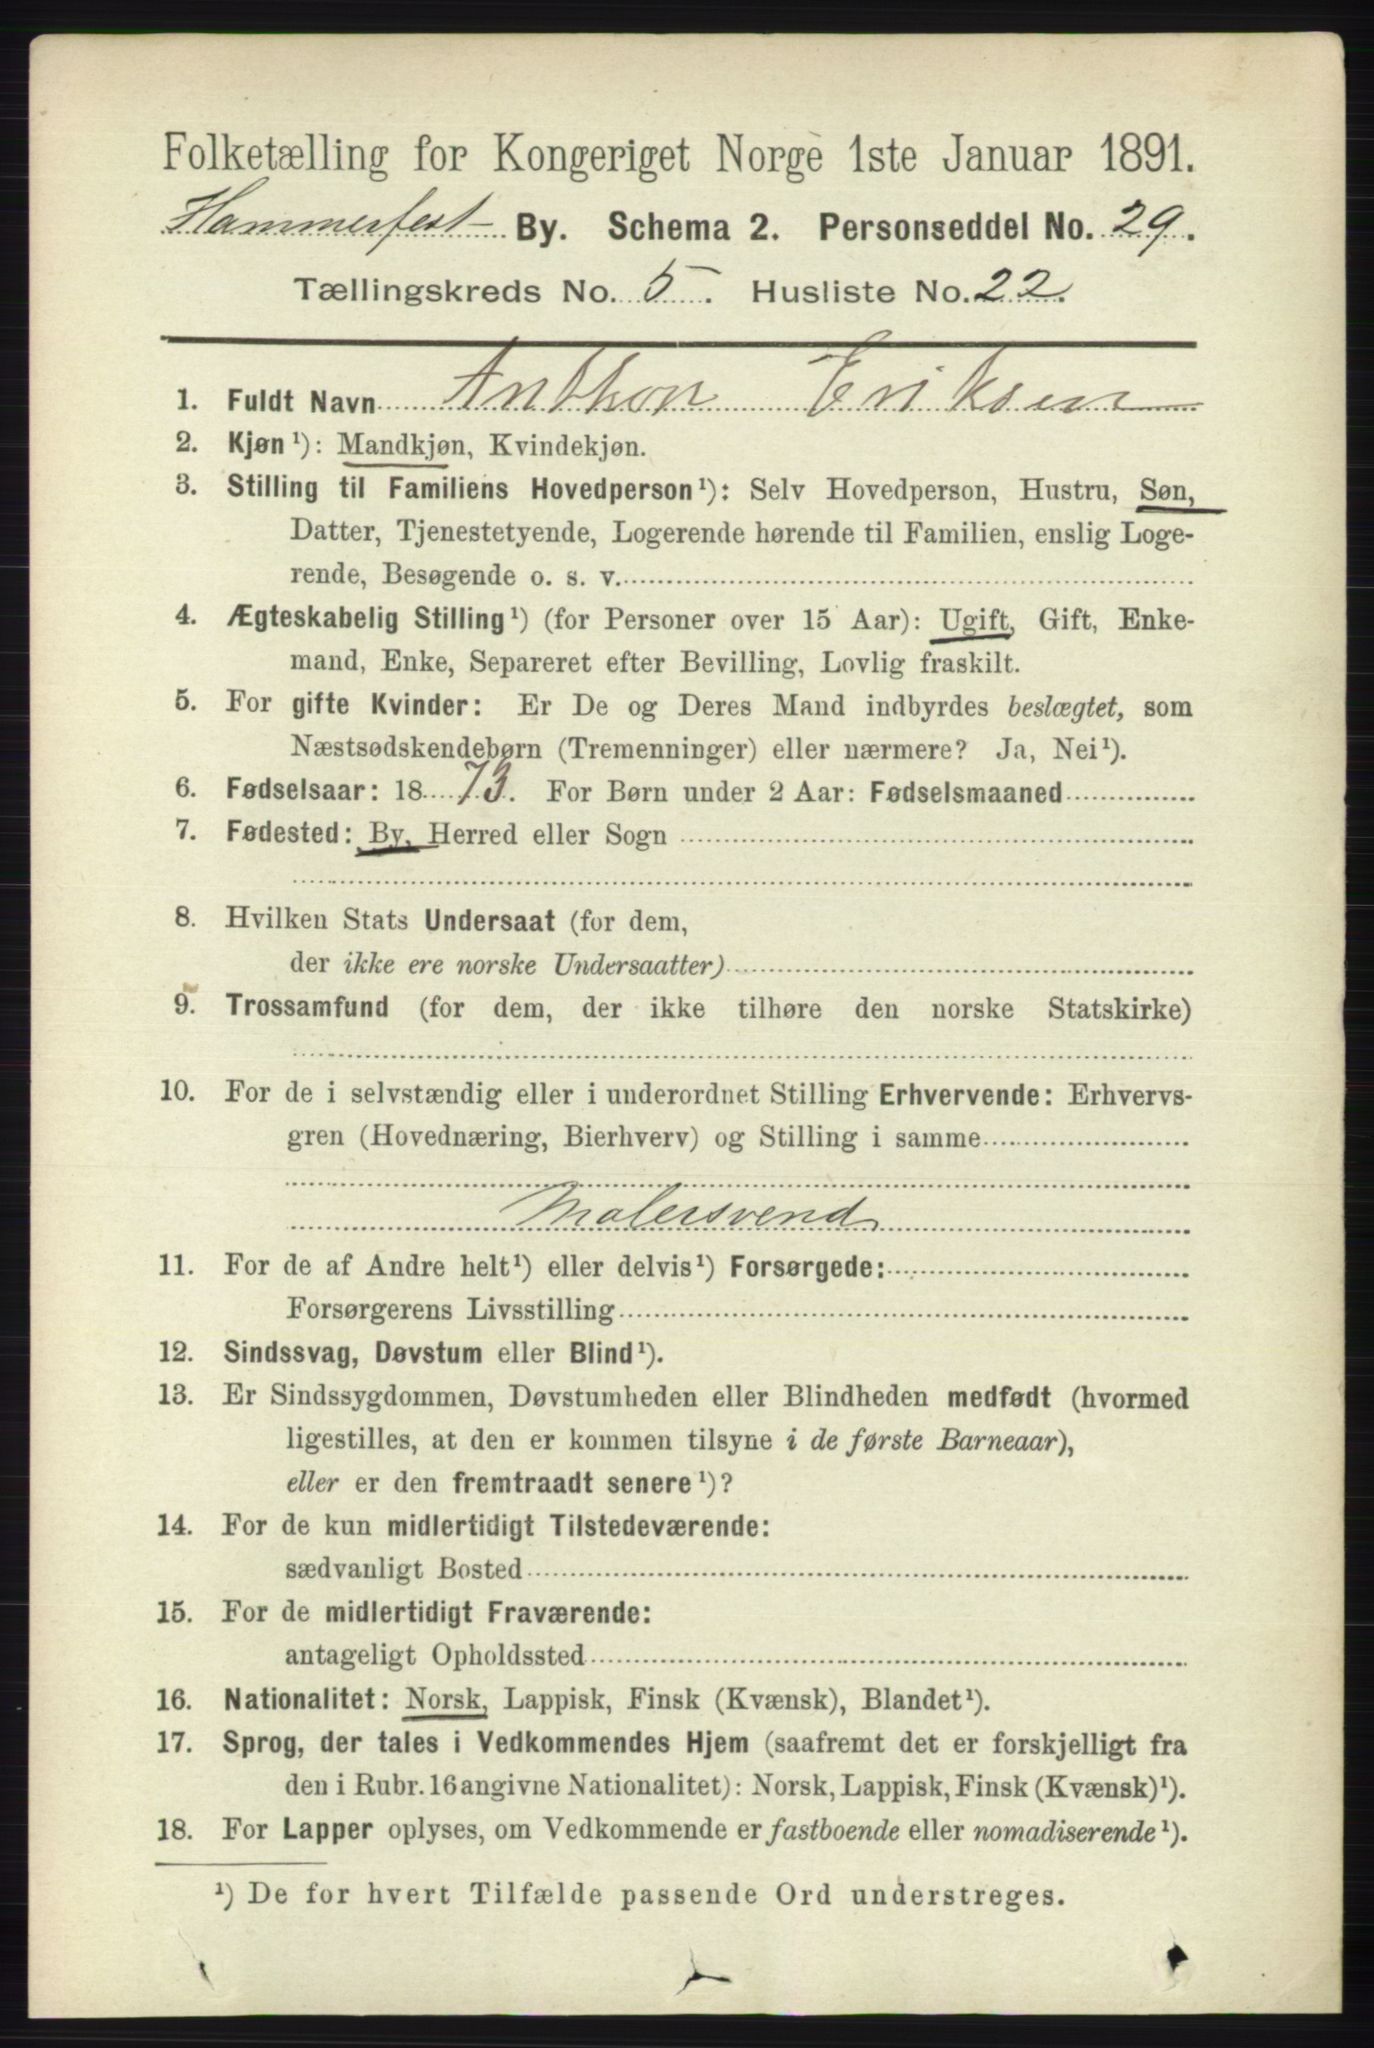 Folketælling for Kongeriget Norge 1ste Januar 1891.
Hammerfest By. Schema 2. Personseddel No. 29.
Tællingskreds No. 5. Husliste No. 22.
1. Fuldt Navn Anthon Eriksen
2. Kjøn¹): Mandkjøn, Kvindekjøn.
3. Stilling til Familiens Hovedperson¹): Selv Hovedperson, Hustru, Søn,
Datter, Tjenestetyende, Logerende hørende til Familien, enslig Loge-
rende, Besøgende o. s. v.
4. Ægteskabelig Stilling¹) (for Personer over 15 Aar): Ugift, Gift, Enke-
mand, Enke, Separeret efter Bevilling, Lovlig fraskilt.
5. For gifte Kvinder: Er De og Deres Mand indbyrdes beslægtet, som
Næstsødskendebørn (Tremenninger) eller nærmere? Ja, Nei¹).
6. Fødselsaar: 1873. For Børn under 2 Aar: Fødselsmaaned
7. Fødested: By, Herred eller Sogn
8. Hvilken Stats Undersaat (for dem,
der ikke ere norske Undersaatter)
9. Trossamfund (for dem, der ikke tilhøre den norske Statskirke)
10. For de i selvstændig eller i underordnet Stilling Erhvervende: Erhvervs-
gren (Hovednæring, Bierhverv) og Stilling i samme
Malersvend
11. For de af Andre helt¹) eller delvis¹) Forsørgede:
Forsørgerens Livsstilling
12. Sindssvag, Døvstum eller Blind¹).
13. Er Sindssygdommen, Døvstumheden eller Blindheden medfødt (hvormed
ligestilles, at den er kommen tilsyne i de første Barneaar),
eller er den fremtraadt senere¹)?
14. For de kun midlertidigt Tilstedeværende:
sædvanligt Bosted
15. For de midlertidigt Fraværende:
antageligt Opholdssted
16. Nationalitet: Norsk, Lappisk, Finsk (Kvænsk), Blandet¹).
17. Sprog, der tales i Vedkommendes Hjem (saafremt det er forskjelligt fra
den i Rubr. 16 angivne Nationalitet): Norsk, Lappisk, Finsk (Kvænsk)¹).
18. For Lapper oplyses, om Vedkommende er fastboende eller nomadiserende¹).
¹) De for hvert Tilfælde passende Ord understreges.